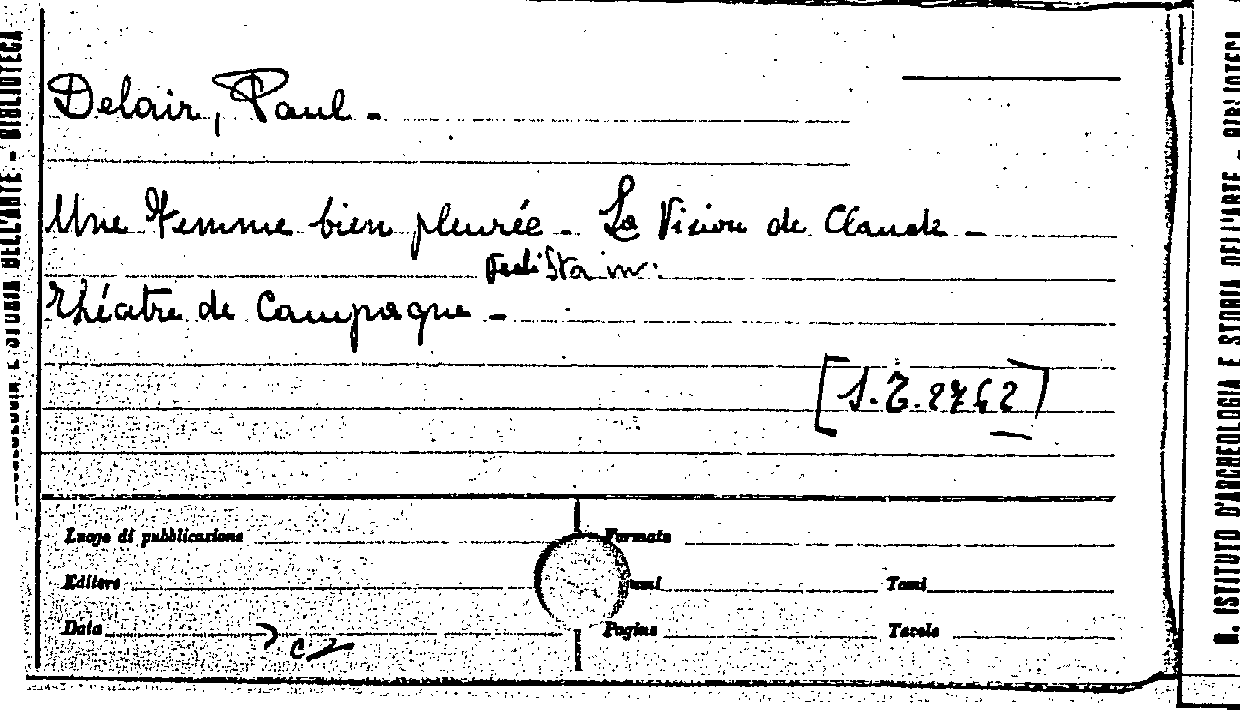 Delair, Paul. -
Une Femme bien pleurée - La Vision de Claude -
Vedi sta in:
Théatre de Campagne -
[S.T.2762]
Luogo di pubblicazione
Formato
Editore
Tomi
Data
Pagine
Tavole
R. ISTITUTO D'ARCHEOLOGIA E STORIA DELL'ARTE - BIBLIOTECA